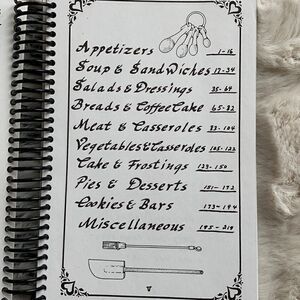 Appetizers 1-16
Soup & Sandwiches 17-34
Salads & Dressings 35-64
Breads & CoffeeCake 65-82
Meat & Casseroles 83-104
Vegetables & Casseroles 105-122
Cake & Frostings 123-150
Pies & Desserts 151-172
Cookies & Bars 173-194
Miscellaneous 195-219
V